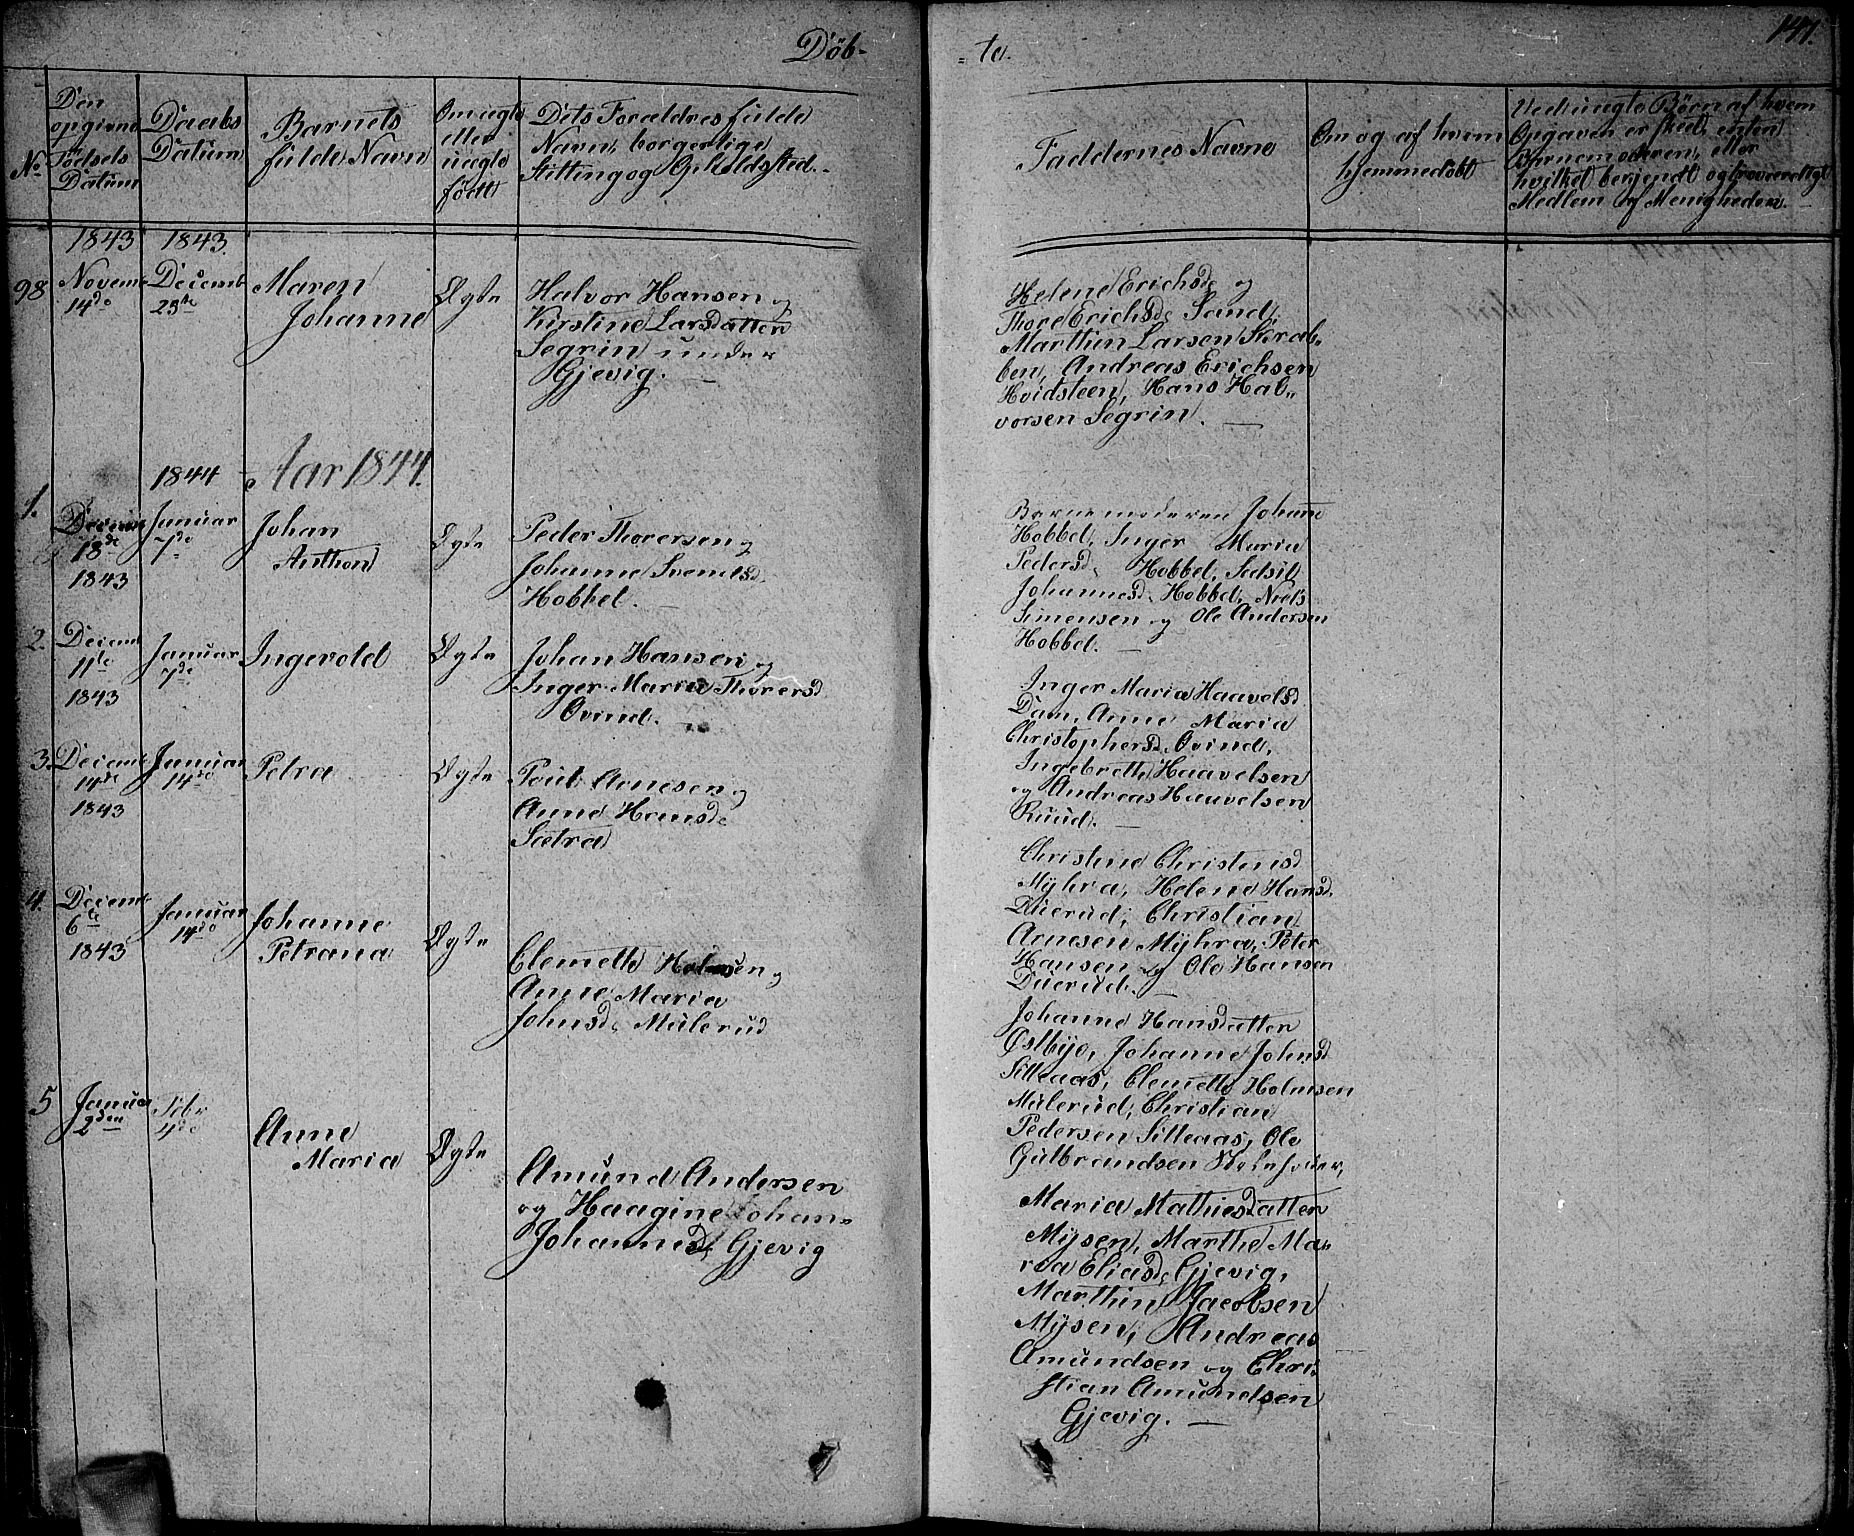 Döb-
No
Den
opgivne
Födsels
Datum
Daabs
Datum
Barnets
fulde Navn
Om ægte
eller
uægte
födt
Dets Forældres fulde
Navn, borgerlige
Stilling og Opholdssted.
1843
1843.
98
Novemb
14de
Decemb
23de
Maren
Johanne
Ægte
Halvor Hansen og
Kirstine Larsdatter
Segrin under
Gjevig.
1844
Aar 1844.
1.
Decemb
18de
1843
Januar
7de
Johan
Anthon
Ægte
Peder Thoresen og
Johanne Svendsd.
Hobbel.
2.
Decemb
11te
1843
Januar
7de
Ingevold
Ægte
Johan Hansen og
Inger Maria Thorersd
Ovind.
3.
Decemb
14de
1843
Januar
14de
Petra
Ægte
Poul Arnesen og
Anne Hansd.
Sætra
4.
Decemb
6te
1843
Januar
14de
Johanne
Petrana
Ægte
Clemeth Holmsen og
Anne Maria
Johnsd. Mulerud
5
Januar
2den
Febr
4de
Anne
Maria
Ægte
Amund Andersen
og Haagine Johan-
Johannesd. Gjevig
= te.
141.
Faddernes Navne
Om og af hvem
hjemmedöbt
Ved uægte Börn af hvem
Opgaven er skeed, enten
Barnemoderen, eller
hvilket bekjendt og troværdigt
Medlem af Menigheden.
Helene Erichsd. og
Thore Erichsd. Sand,
Marthin Larsen Skrab-
ben, Andreas Erichsen
Hvidsteen, Hans Hal-
vorsen Segrin.
Barnemoderen Johane
Hobbel, Inger Maria
Pedersd. Hobbel, Sidsil
Johannesd. Hobbel, Niels
Simensen og Ole Andersen
Hobbel.
Inger Maria Haavelsd
Dam, Anne Maria
Christophersd. Ovind,
Ingebreth Haavelsen
og Andreas Haavelsen
Ruud.
Christine Christensd
Myhra, Helene Hansd.
Duerud, Christian
Arnesen Myhra, Peter
Hansen og Ole Hansen
Duerud.
Johanne Hansdatter
Østbye, Johanne Johnsd
Sitteaas, Clemeth Holmsen
Mulerud, Christian
Pedersen Sitteaas, Ole
Gulbrandsen
Maria Mathiesdatter
Mysen, Marthe Ma-
ria Eliasd. Gjevig,
Marthin Jacobsen
Mysen, Andreas
Amundsen og Chri-
stian Amundsen
Gjevig.